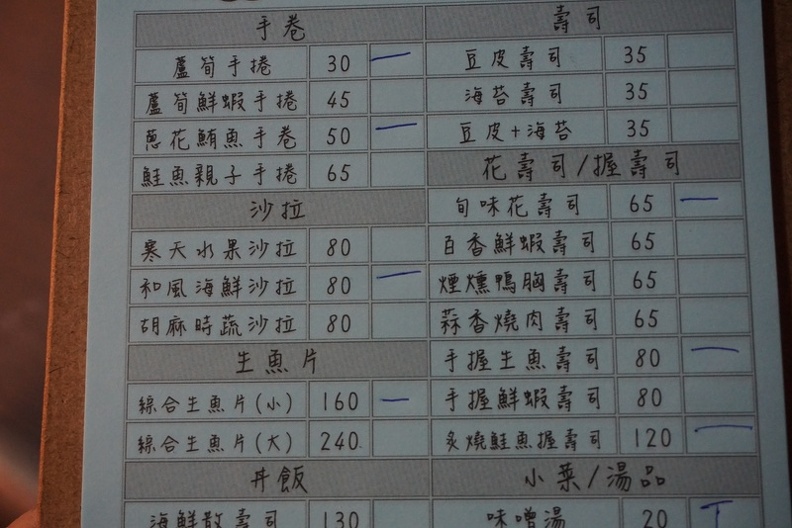 手卷
蘆筍手捲 30 一
蘆筍鮮蝦手捲 45
蔥花鮪魚手卷 50 一
鮭魚親子手捲 65
沙拉
寒天水果沙拉 80
和風海鮮沙拉 80 一
胡麻時蔬沙拉 80
生魚片
綜合生魚片(小) 160 一
綜合生魚片(大) 240
丼飯
海鮮散壽司 130
壽司
豆皮壽司 35
海苔壽司 35
豆皮+海苔 35
花壽司/握壽司
旬味花壽司 65 一
百香鮮蝦壽司 65
煙燻鴨胸壽司 65
蒜香燒肉壽司 65
手握生魚壽司 80 一
手握鮮蝦壽司 80
炙燒鮭魚握壽司 120 一
小菜/湯品
味噌湯 20